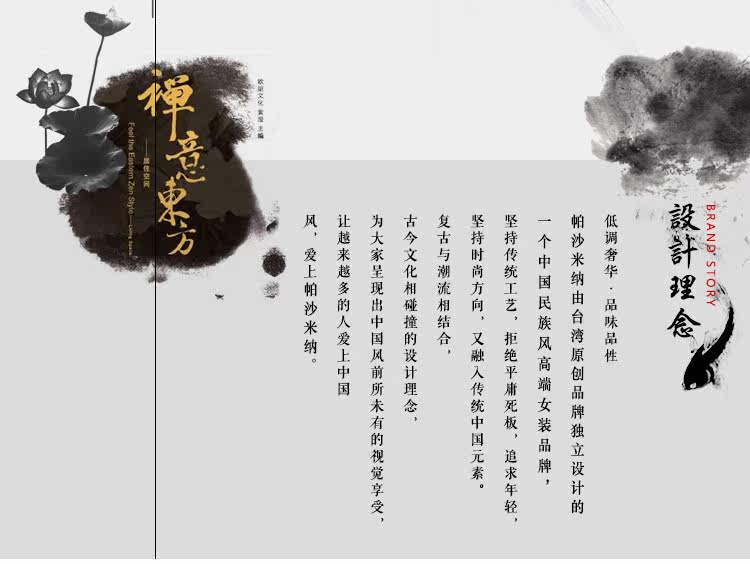 設計理念
BRAND STORY
低调奢华·品味品性
帕沙米纳由台湾原创品牌独立设计的
一个中国民族风高端女装品牌，
坚持传统工艺，拒绝平庸死板，追求年轻，
坚持时尚方向，又融入传统中国元素。
复古与潮流相结合，
古今文化相碰撞的设计理念，
为大家呈现出中国风前所未有的视觉享受，
让越来越多的人爱上中国
风，爱上帕沙米纳。
禅意東方
——居住空间
Feel the Eastern Zen Style——Living Space
主编